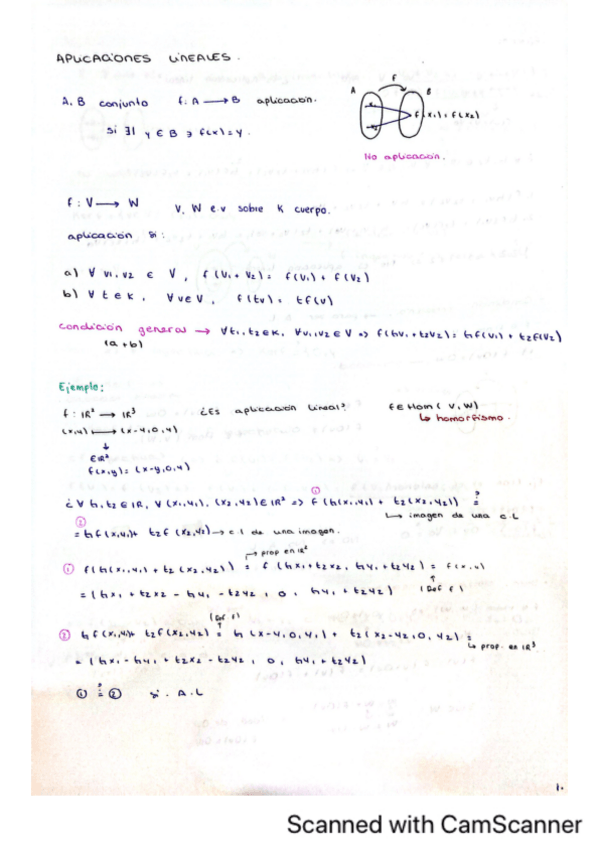 APLICACIONES LINEALES.
A, B conjunto f: A → B aplicación.
Si ∃! y ∈ B ∋ f(x) = y.
F
A B
x1 x2 f(x1) = f(x2)
No aplicación.
f: V → W V, W e.v sobre K cuerpo.
aplicación si:
a) ∀ v1, v2 ∈ V, f(v1 + v2) = f(v1) + f(v2)
b) ∀ t ∈ K, ∀ v ∈ V, f(tv) = tf(v)
condición general → ∀ t1, t2 ∈ K, ∀ v1, v2 ∈ V => f(t1v1 + t2v2) = t1f(v1) + t2f(v2)
(a+b)
Ejemplo:
f: IR² → IR³ ¿Es aplicación lineal? f ∈ Hom(V, W)
(x,y) ↦ (x-y, 0, y) ↳ homorfismo.
↓
∈ IR²
f(x,y) = (x-y, 0, y)
①
¿∀ t1, t2 ∈ IR, ∀ (x1, y1), (x2, y2) ∈ IR² => f(t1(x1, y1) + t2(x2, y2)) ≟
② ↳ imagen de una c.L
= t1f(x1,y1) + t2f(x2,y2) → c.l de una imagen.
↱ prop en IR²
① f(t1(x1, y1) + t2(x2, y2)) = f(t1x1 + t2x2, t1y1 + t2y2) = f(x,y)
= (t1x1 + t2x2 - t1y1 - t2y2, 0, t1y1 + t2y2) ↑ (Def f)
(Def f) ↑
② t1f(x1,y1) + t2f(x2,y2) = t1(x-y, 0, y1) + t2(x2-y2, 0, y2) =
↳ prop. en IR³
= (t1x1 - t1y1 + t2x2 - t2y2, 0, t1y1 + t2y2)
① ≟ ② si. A.L
1.
Scanned with CamScanner